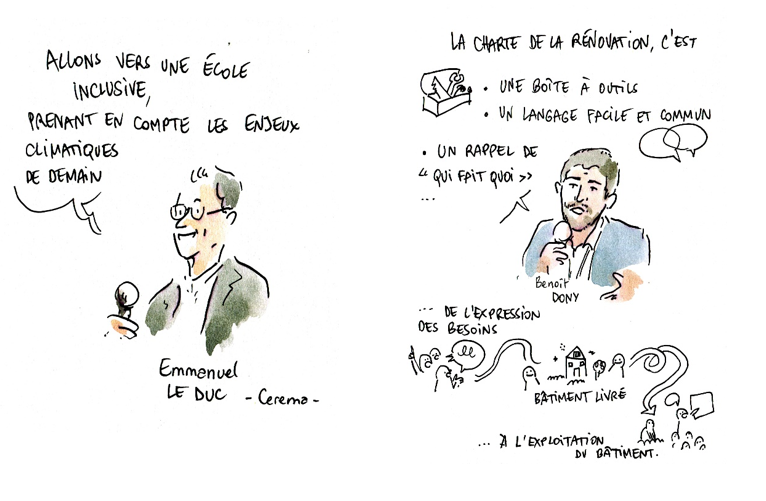 ALLONS VERS UNE ÉCOLE
INCLUSIVE,
PRENANT EN COMPTE LES ENJEUX
CLIMATIQUES
DE DEMAIN
Emmanuel
LE DUC - Cerema -
LA CHARTE DE LA RÉNOVATION, C'EST
• UNE BOÎTE À OUTILS
• UN LANGAGE FACILE ET COMMUN
• UN RAPPEL DE
"QUI FAIT QUOI"
...
Benoit
DONY
... DE L'EXPRESSION
DES BESOINS
BÂTIMENT LIVRÉ
... À L'EXPLOITATION
DU BÂTIMENT.